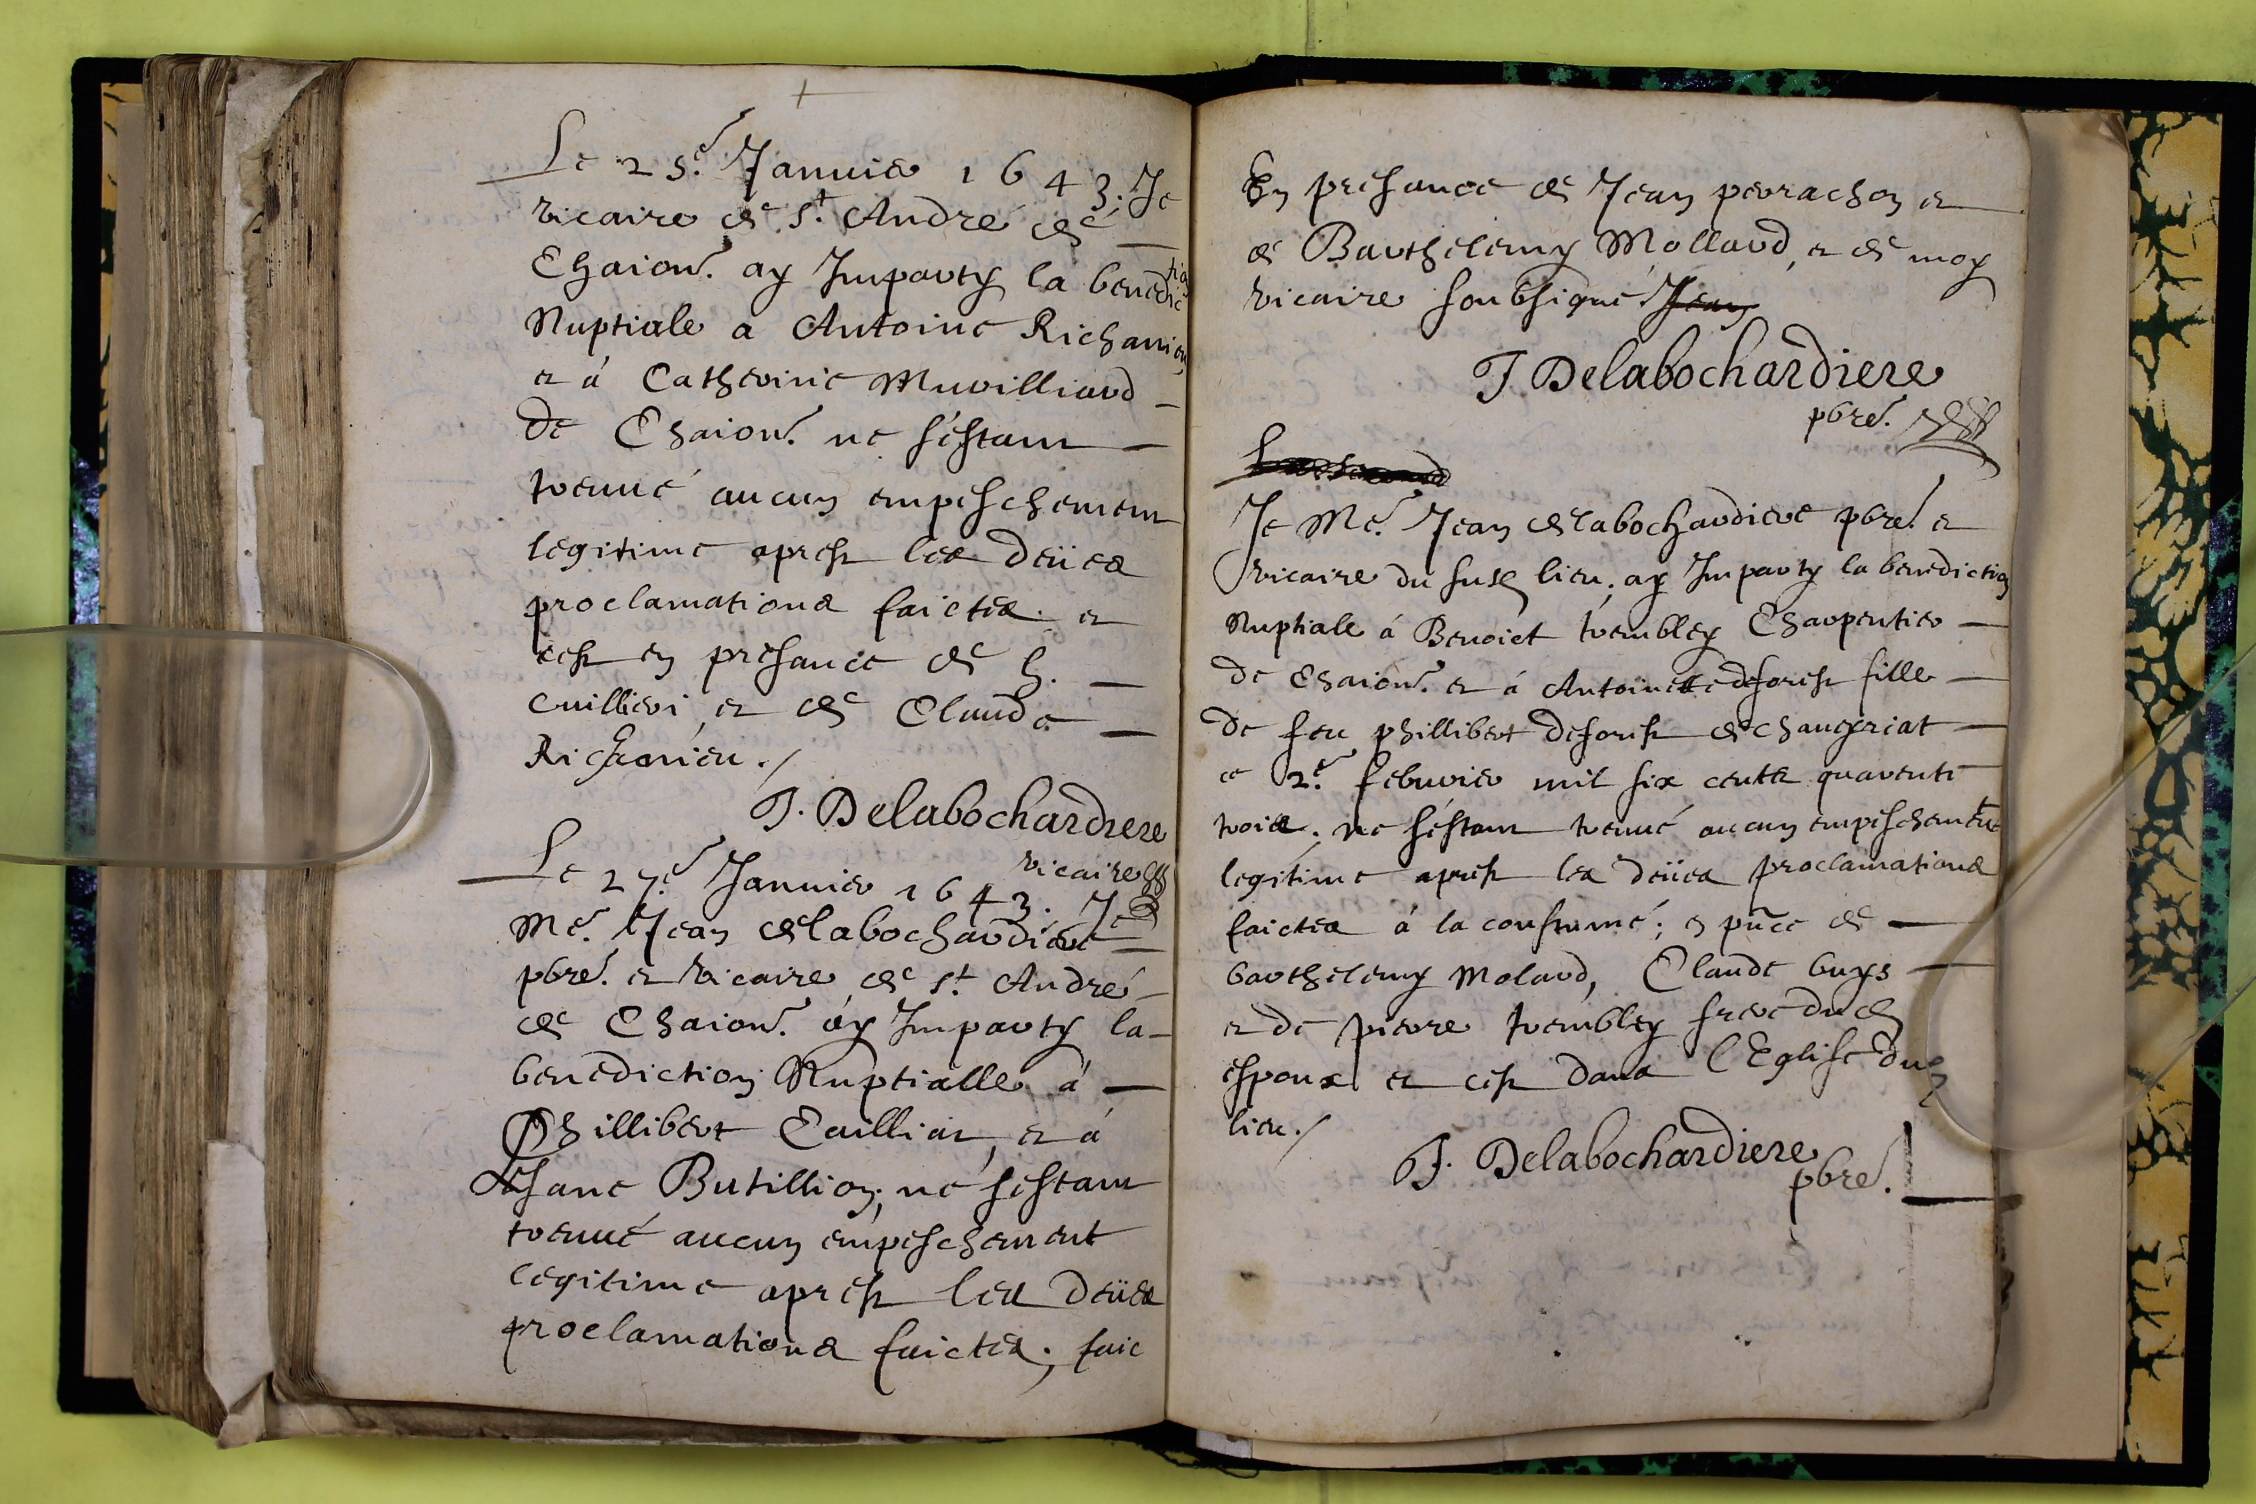 Le 25.e Januier 1643. Je
vicaire de st. André de
Chaion. ay Imparty la benediction
Nuptiale a Antoine Richanieu
et á Catherine Murilliard
de Chaion. ne séstant
treuué aucun empeschement
legitime aprest les deües
proclamations faictes. et
cest en presance de h.
cuillieri, et de Claude
Richonieu./
J. Delabochardiere
vicaire
Le 27.e Januier 1643. Je
Me. Jean delabochardiere
pbre. et vicaire de st. André
de Chaion. ay Imparty la
benediction Nuptialle á
Phillibert Cailliat, et á
Jane Butillion; ne séstant
treuué aucun empeschement
legitime aprest les deües
proclamations faictes; faic
En presance de Jean perrachon et
de Barthelemy Mollard, et de moy
vicaire soubsigné Jean
J Delabochardiere
pbre.
Je Me. Jean delabochardiere pbre. et
vicaire du susd lieu, ay Imparty la benediction
Nuptiale á Benoict trembley Charpentier
de Chaion. et á Antoinette deforest fille
de feu phillibert deforest de chaueyriat
ce 2.e februier mil six cents quarente
trois. ne séstant treuué aucun empeschement
legitime aprest les deües proclamations
faictes á la coustume; en pnce de
barthelemy Molard, Claude buys
et de pierre trembley frere dud
espoux et cest dans l'Eglise dud
lieu./
J. Delabochardiere
pbre.